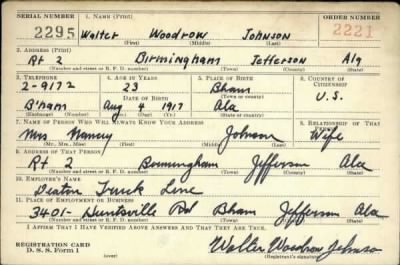 SERIAL NUMBER 1. NAME (Print) ORDER NUMBER
2295 Walter Woodrow Johnson 2221
(First) (Middle) (Last)
2. ADDRESS (Print)
Rt 2 Birmingham Jefferson Ala
(Number and street or R. F. D. number) (Town) (County) (State)
3. TELEPHONE 4. AGE IN YEARS 5. PLACE OF BIRTH 6. COUNTRY OF CITIZENSHIP
2-9172 23 Bham
DATE OF BIRTH (Town or county) U.S.
B'ham Aug 4 1917 Ala
(Exchange) (Number) (Mo.) (Day) (Yr.) (State or country)
7. NAME OF PERSON WHO WILL ALWAYS KNOW YOUR ADDRESS 8. RELATIONSHIP OF THAT PERSON
Mrs Johnson Wife
(Mr., Mrs., Miss) (First) (Middle) (Last)
9. ADDRESS OF THAT PERSON
Rt 2 Birmingham Jefferson Ala
(Number and street or R. F. D. number) (Town) (County) (State)
10. EMPLOYER'S NAME
Deaton Truck Line
11. PLACE OF EMPLOYMENT OR BUSINESS
3401- Huntsville Rd Bham Jefferson Ala
(Number and street or R. F. D. number) (Town) (County) (State)
I AFFIRM THAT I HAVE VERIFIED ABOVE ANSWERS AND THAT THEY ARE TRUE.
REGISTRATION CARD
D. S. S. Form 1 (over) Walter Woodrow Johnson
(Registrant's signature)